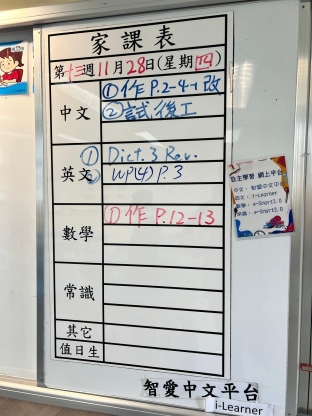 家課表
第十三週11月28日(星期四)
中文
①作 P.2-4+改
②試後工
英文
① Dict.3 Rev.
② WP(4) P.3
數學
①作 P.12-13
常識
其它
值日生
自主學習 網上平台
中文: 智愛中文平台
英文: i-Learner
數學: e-Smart2.0
常識: e-Smart2.0
智愛中文平台
i-Learner